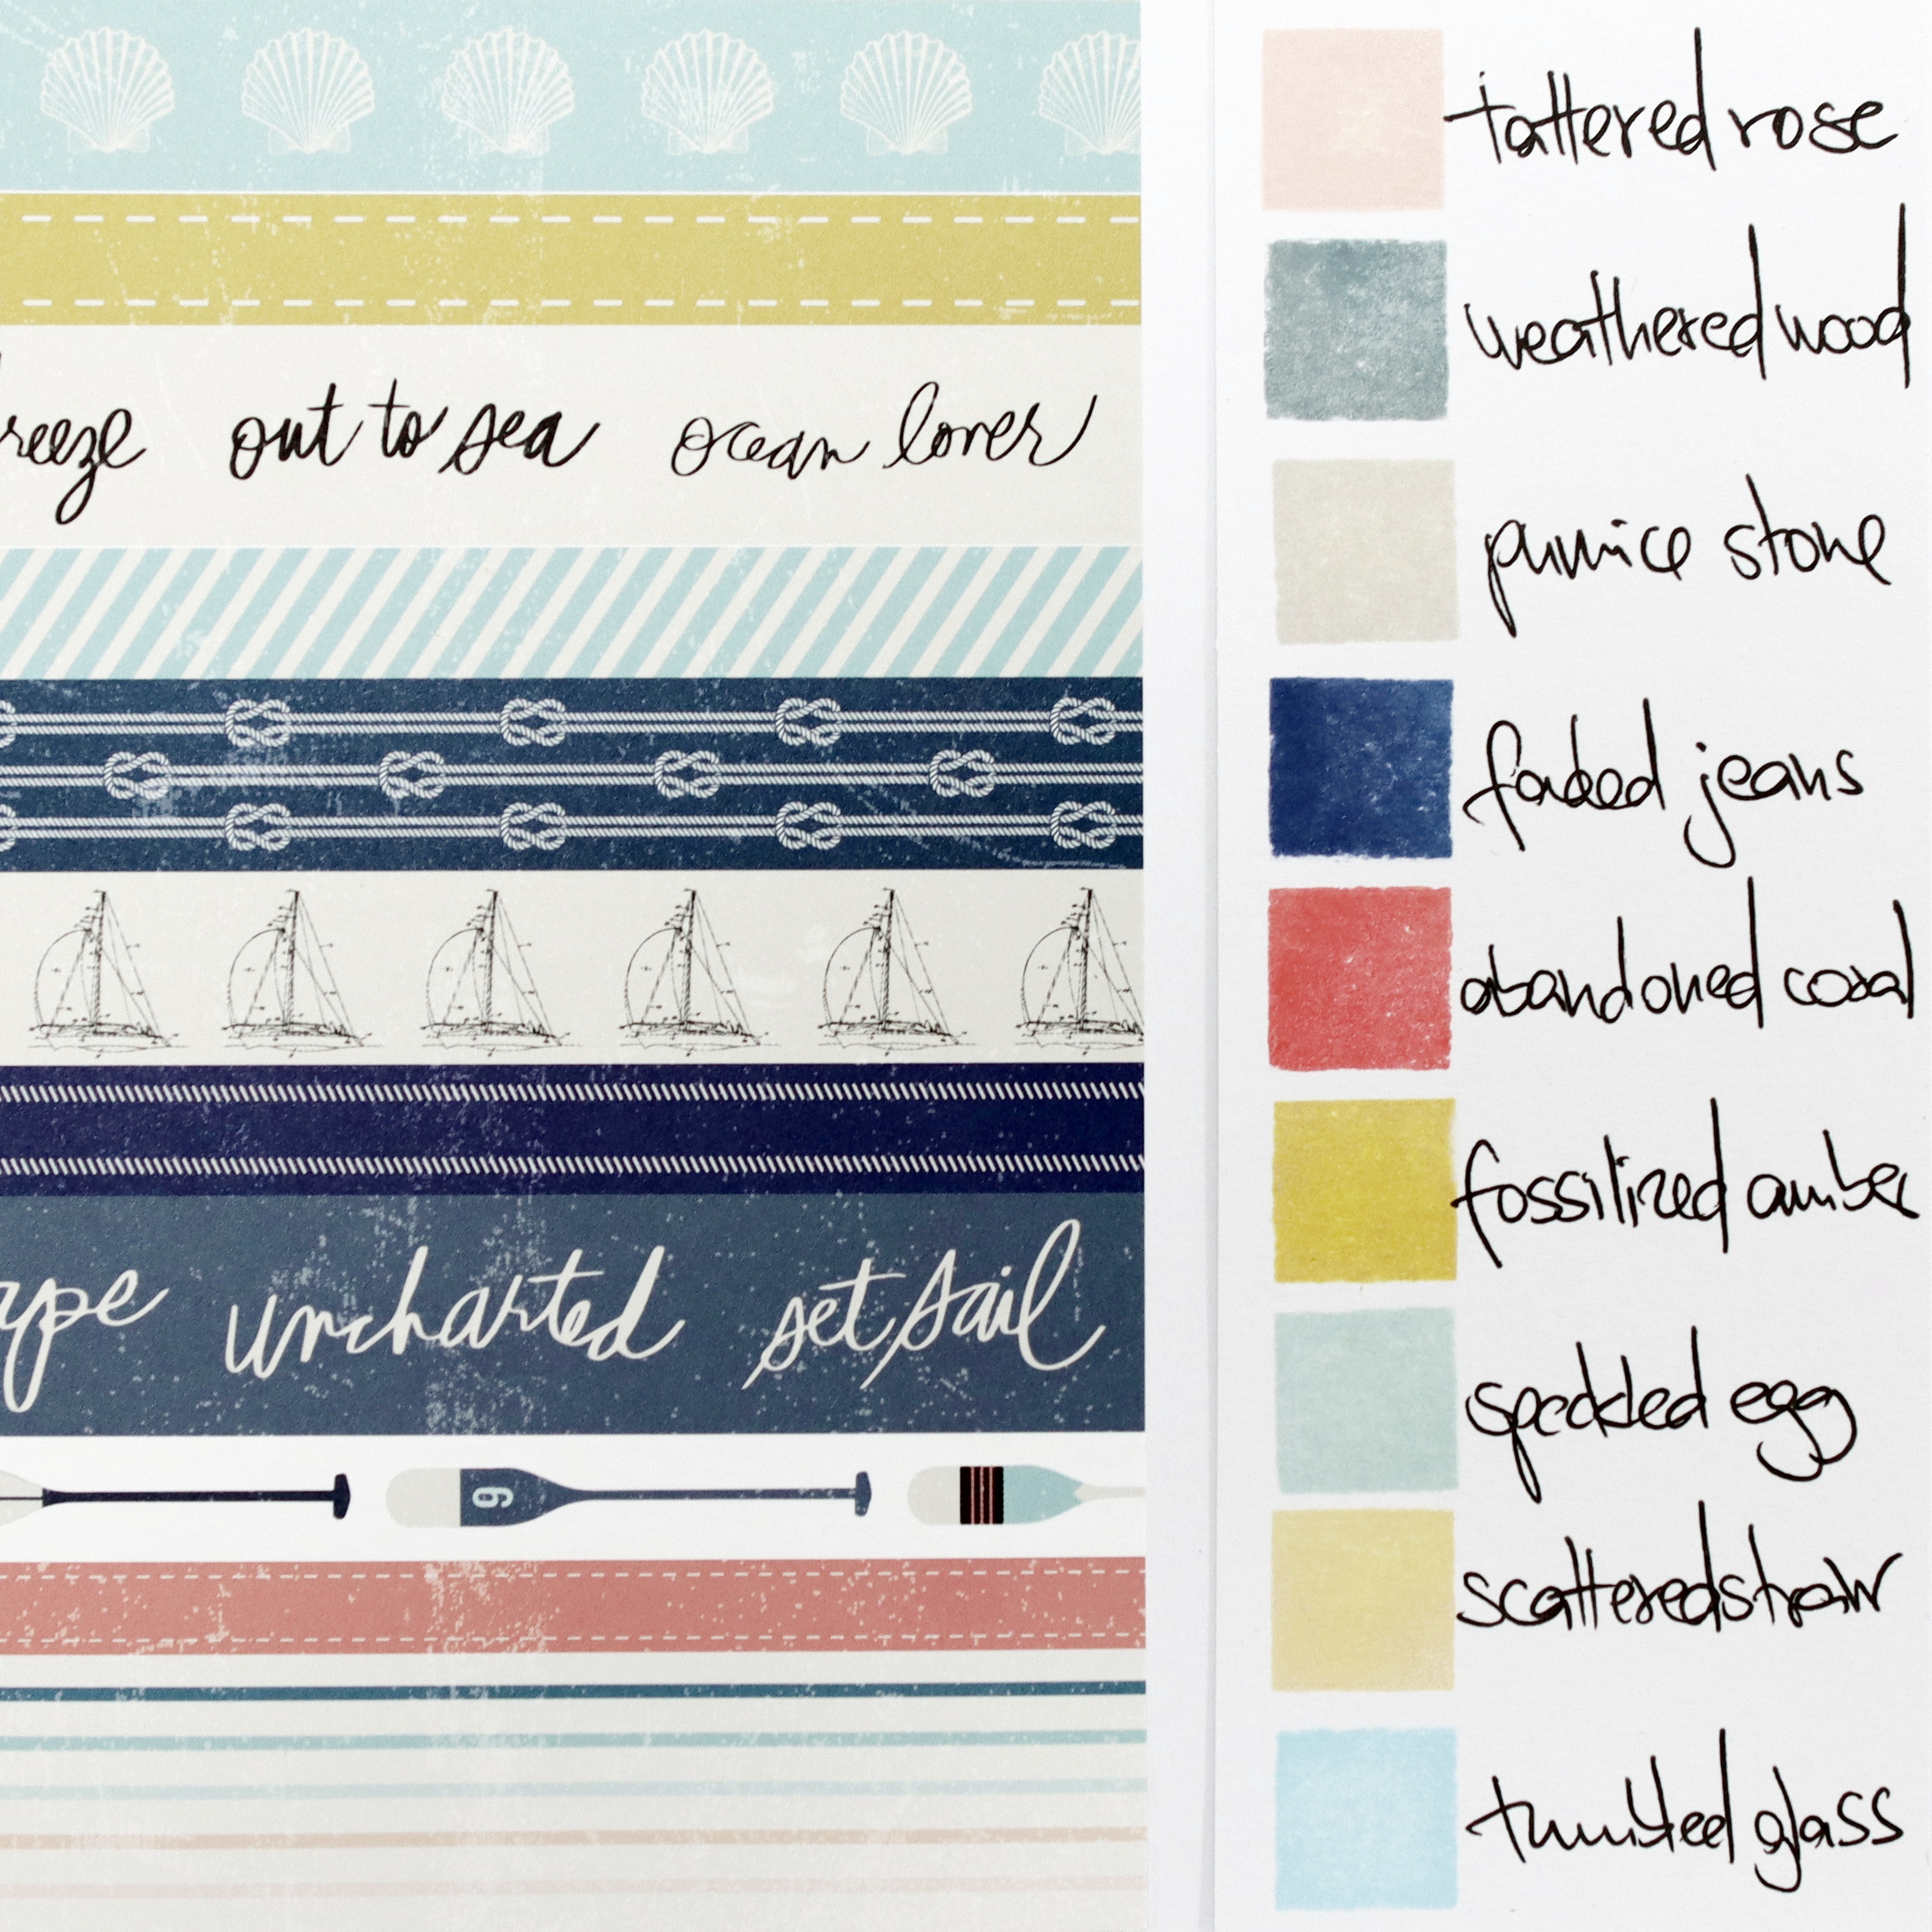 reeze out to sea ocean lover
ype uncharted set sail
9
tattered rose
weathered wood
pumice stone
faded jeans
abandoned coral
fossilized amber
speckled egg
scattered straw
tumbled glass